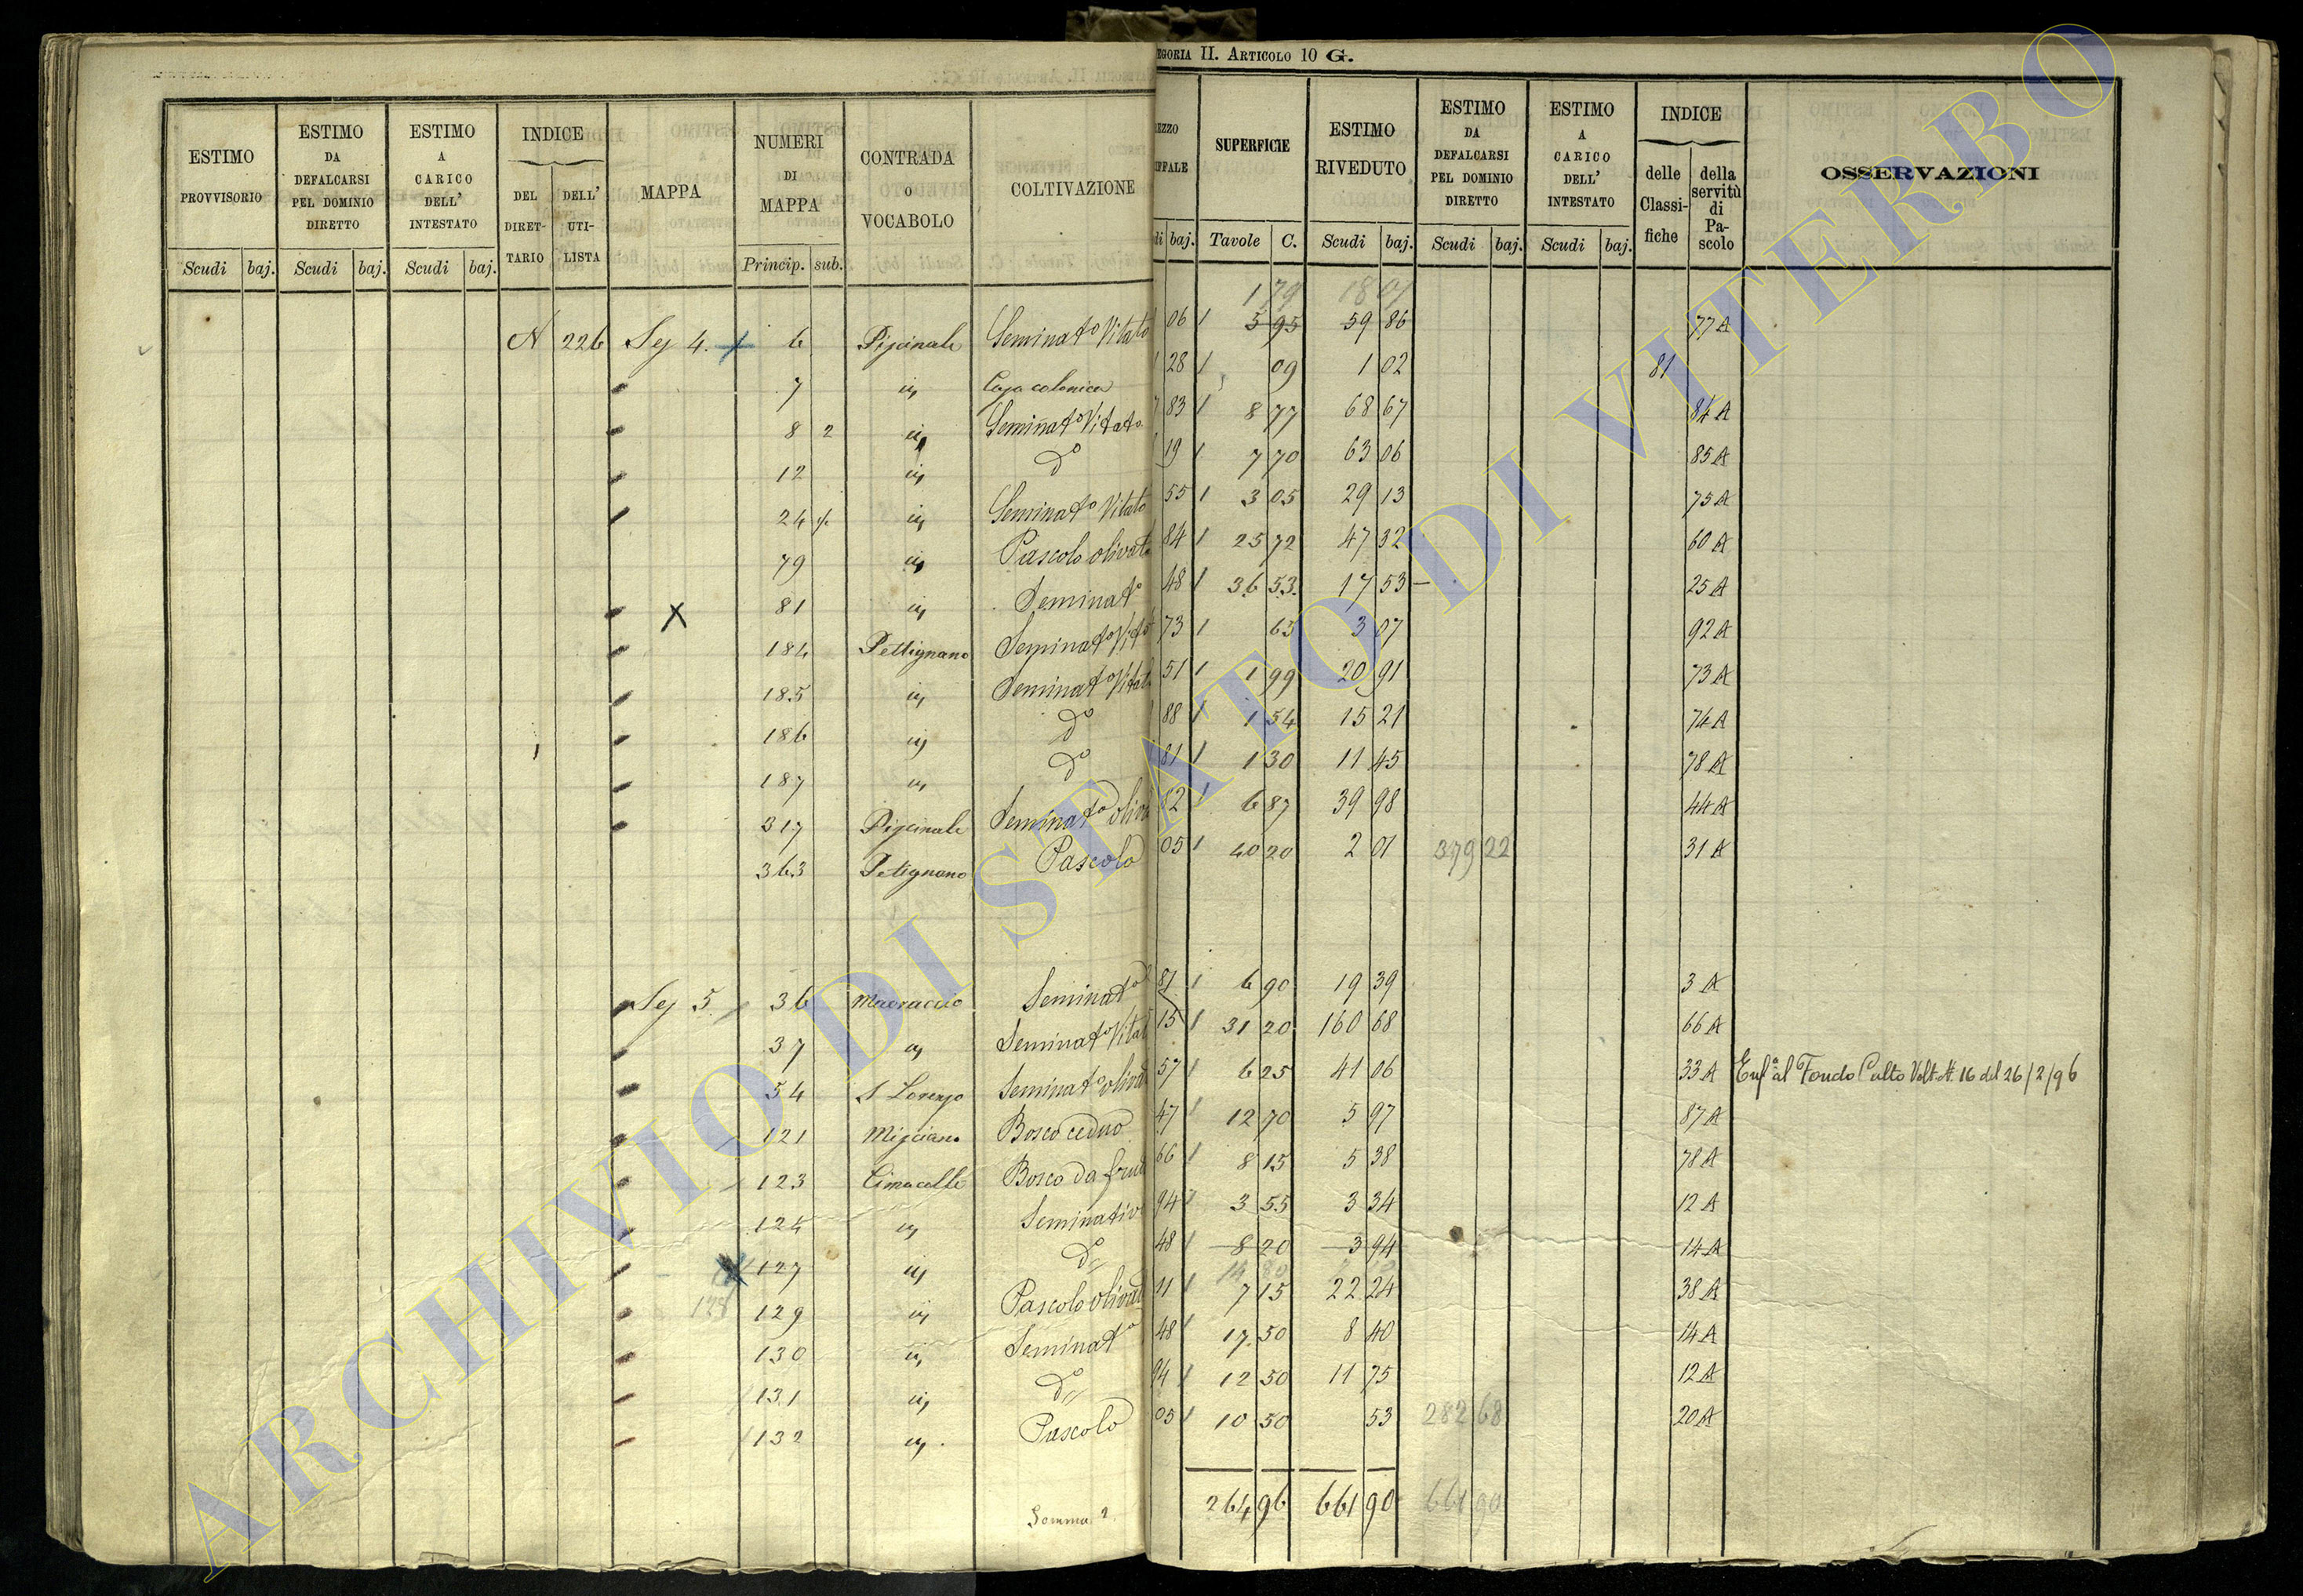 EGORIA II. ARTICOLO 10 G.
ESTIMO PROVVISORIO
ESTIMO DA DEFALCARSI PEL DOMINIO DIRETTO
ESTIMO A CARICO DELL' INTESTATO
INDICE
DEL DIRETTARIO
DELL' UTILISTA
MAPPA
NUMERI DI MAPPA
CONTRADA O VOCABOLO
COLTIVAZIONE
EZZO IFFALE
SUPERFICIE
ESTIMO RIVEDUTO
ESTIMO DA DEFALCARSI PEL DOMINIO DIRETTO
ESTIMO A CARICO DELL' INTESTATO
INDICE
delle Classifiche
della servitù di Pascolo
OSSERVAZIONI
Scudi baj. Scudi baj. Scudi baj. Princip. sub. di baj. Tavole C. Scudi baj. Scudi baj. Scudi baj.
1 79 18 01
N 226 Sez 4. 6 Piscinale Seminato Vitato 06 5 95 59 86 77 A
7 id Casa colonica 28 09 1 02 81
8 2 id Seminato Vitato 83 8 77 68 67 84 A
12 id do 19 7 70 63 06 85 A
24 id Seminato Vitato 55 3 05 29 13 75 A
79 id Pascolo olivato 84 25 72 47 32 60 A
X 81 id Seminato 48 36 53 17 53 25 A
184 Pettignano Seminato Vito 73 63 3 07 92 A
185 id Seminato Vitato 51 1 99 20 91 73 A
186 id do 88 1 54 15 21 74 A
187 id do 81 1 30 11 45 78 A
317 Piscinale Seminato oliva 82 6 87 39 98 44 A
363 Petignano Pascolo 05 40 20 2 01 379 22 31 A
Sez 5. 36 Seminato 81 6 90 19 39 3 A
37 id Seminato Vitat 15 31 20 160 68 66 A
54 S Lorenzo Seminato oliva 57 6 25 41 06 33 A Enfa al Fondo Culto Volt. N. 16 del 26/2/96
121 Misciano Bosco ceduo 47 12 70 5 97 87 A
123 Cimacolle Bosco da frut 66 8 15 5 38 78 A
124 id Seminativo 94 3 55 3 34 12 A
127 id do 48 8 20 3 94 14 A
14 80
128 129 id Pascolo olivat 11 7 15 22 24 38 A
130 id Seminato 48 17 50 8 40 14 A
131 id do 94 12 50 11 75 12 A
132 id Pascolo 05 10 50 53 282 68 20 A
Somma 264 96 661 90 661 90
ARCHIVIO DI STATO DI VITERBO